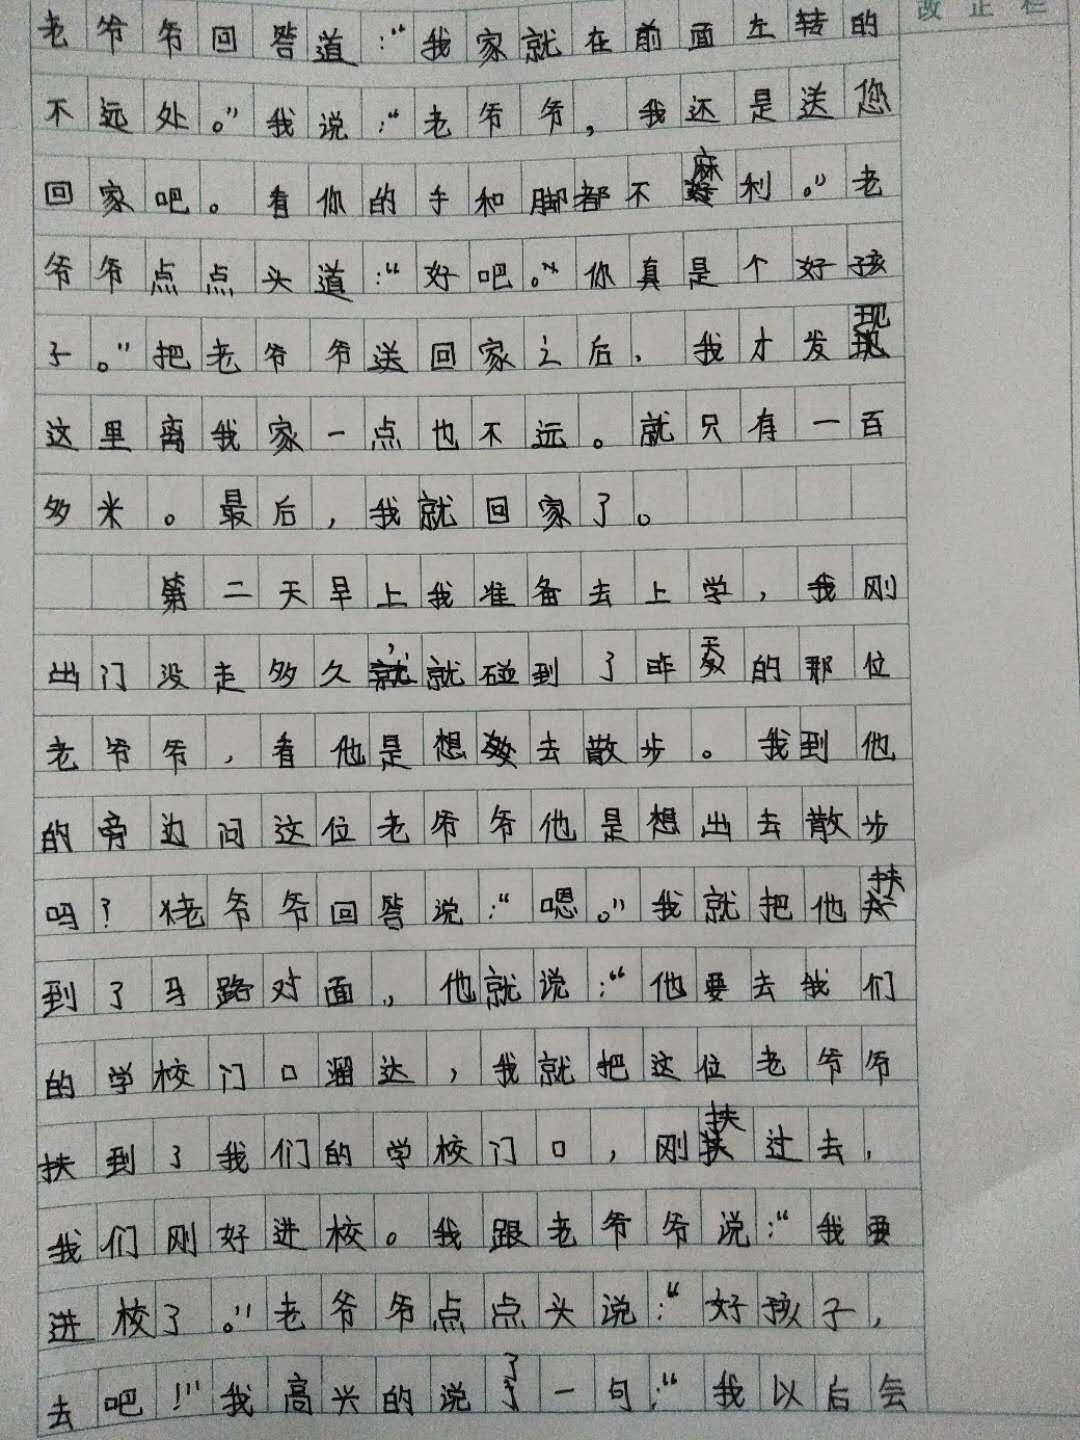 改正栏
老爷爷回答道：“我家就在前面左转的
不远处。”我说：“老爷爷，我还是送您
回家吧。看你的手和脚都不麻利。”老
爷爷点点头道：“好吧。”你真是个好孩
子。”把老爷爷送回家之后，我才发现
这里离我家一点也不远。就只有一百
多米。最后，我就回家了。
第二天早上我准备去上学，我刚
出门没走多久，就碰到了昨天的那位
老爷爷，看他是想去散步。我到他
的旁边问这位老爷爷他是想出去散步
吗？老爷爷回答说：“嗯。”我就把他扶
到了马路对面，他就说：“他要去我们
的学校门口溜达，我就把这位老爷爷
扶到了我们的学校门口，刚扶过去，
我们刚好进校。我跟老爷爷说：“我要
进校了。”老爷爷点点头说：“好孩子，
去吧！”我高兴的说了一句：“我以后会